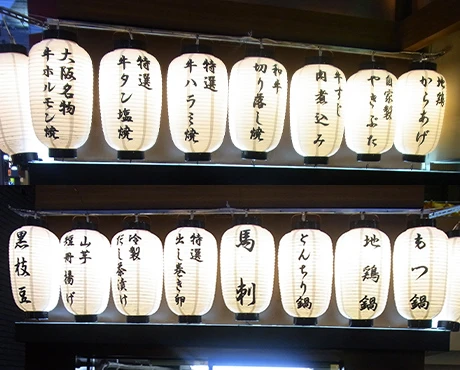 地鶏
からあげ
自家製
やきぶた
牛すじ
肉煮込み
和牛
切り落し焼
特選
牛ハラミ焼
特選
牛タン塩焼
大阪名物
牛ホルモン焼
もつ鍋
地鶏鍋
とんちり鍋
馬刺
特選
出し巻き卵
冷製
だし茶漬け
山芋
短冊揚げ
黒枝豆